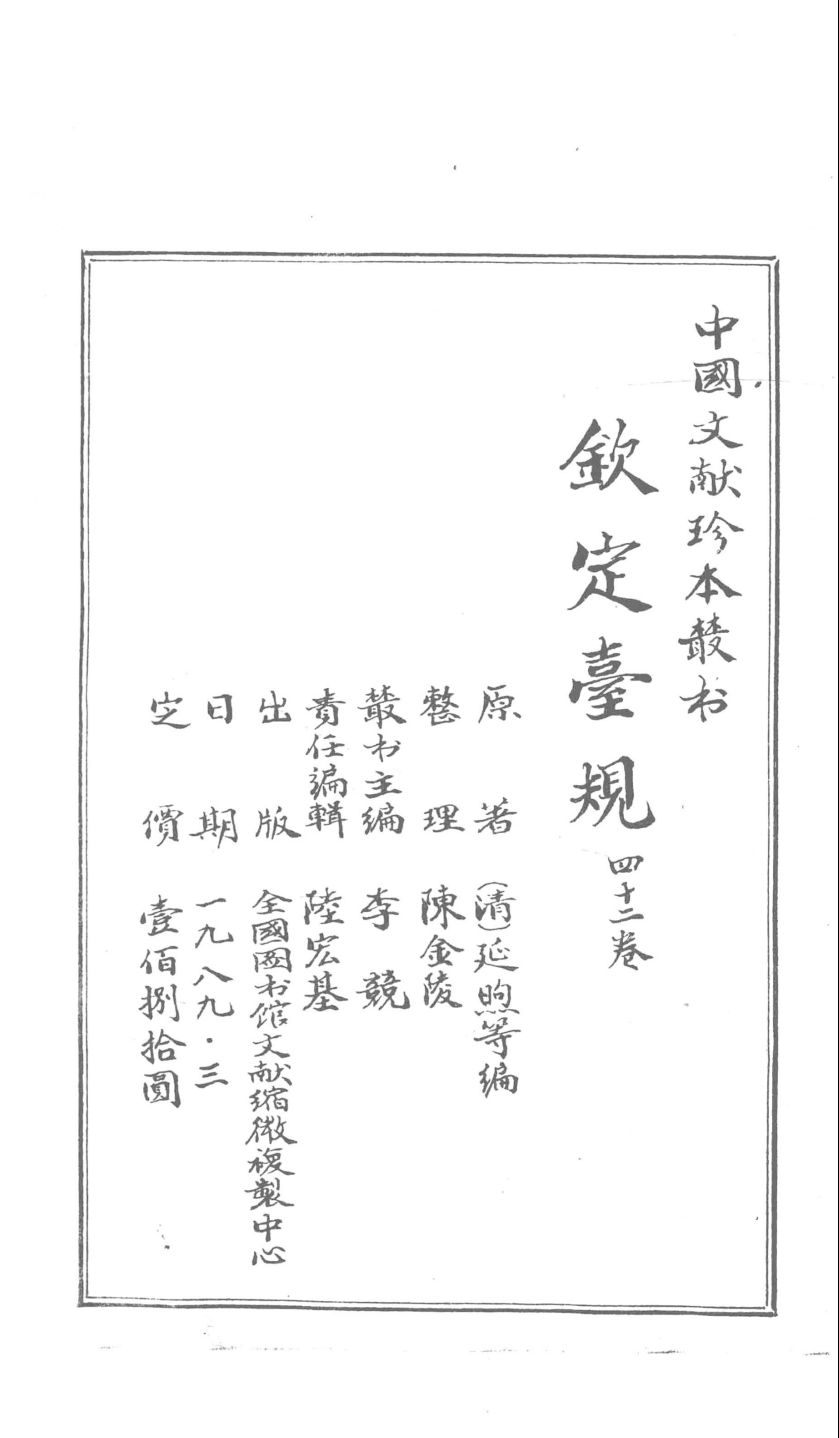 中國文献珍本叢书
欽定臺規 四十二卷
原著 (清)延煦等編
整理 陳金陵
叢书主编 李競
責任编輯 陸宏基
出版 全國图书馆文献缩微複製中心
日期 一九八九·三
定價 壹佰捌拾圓